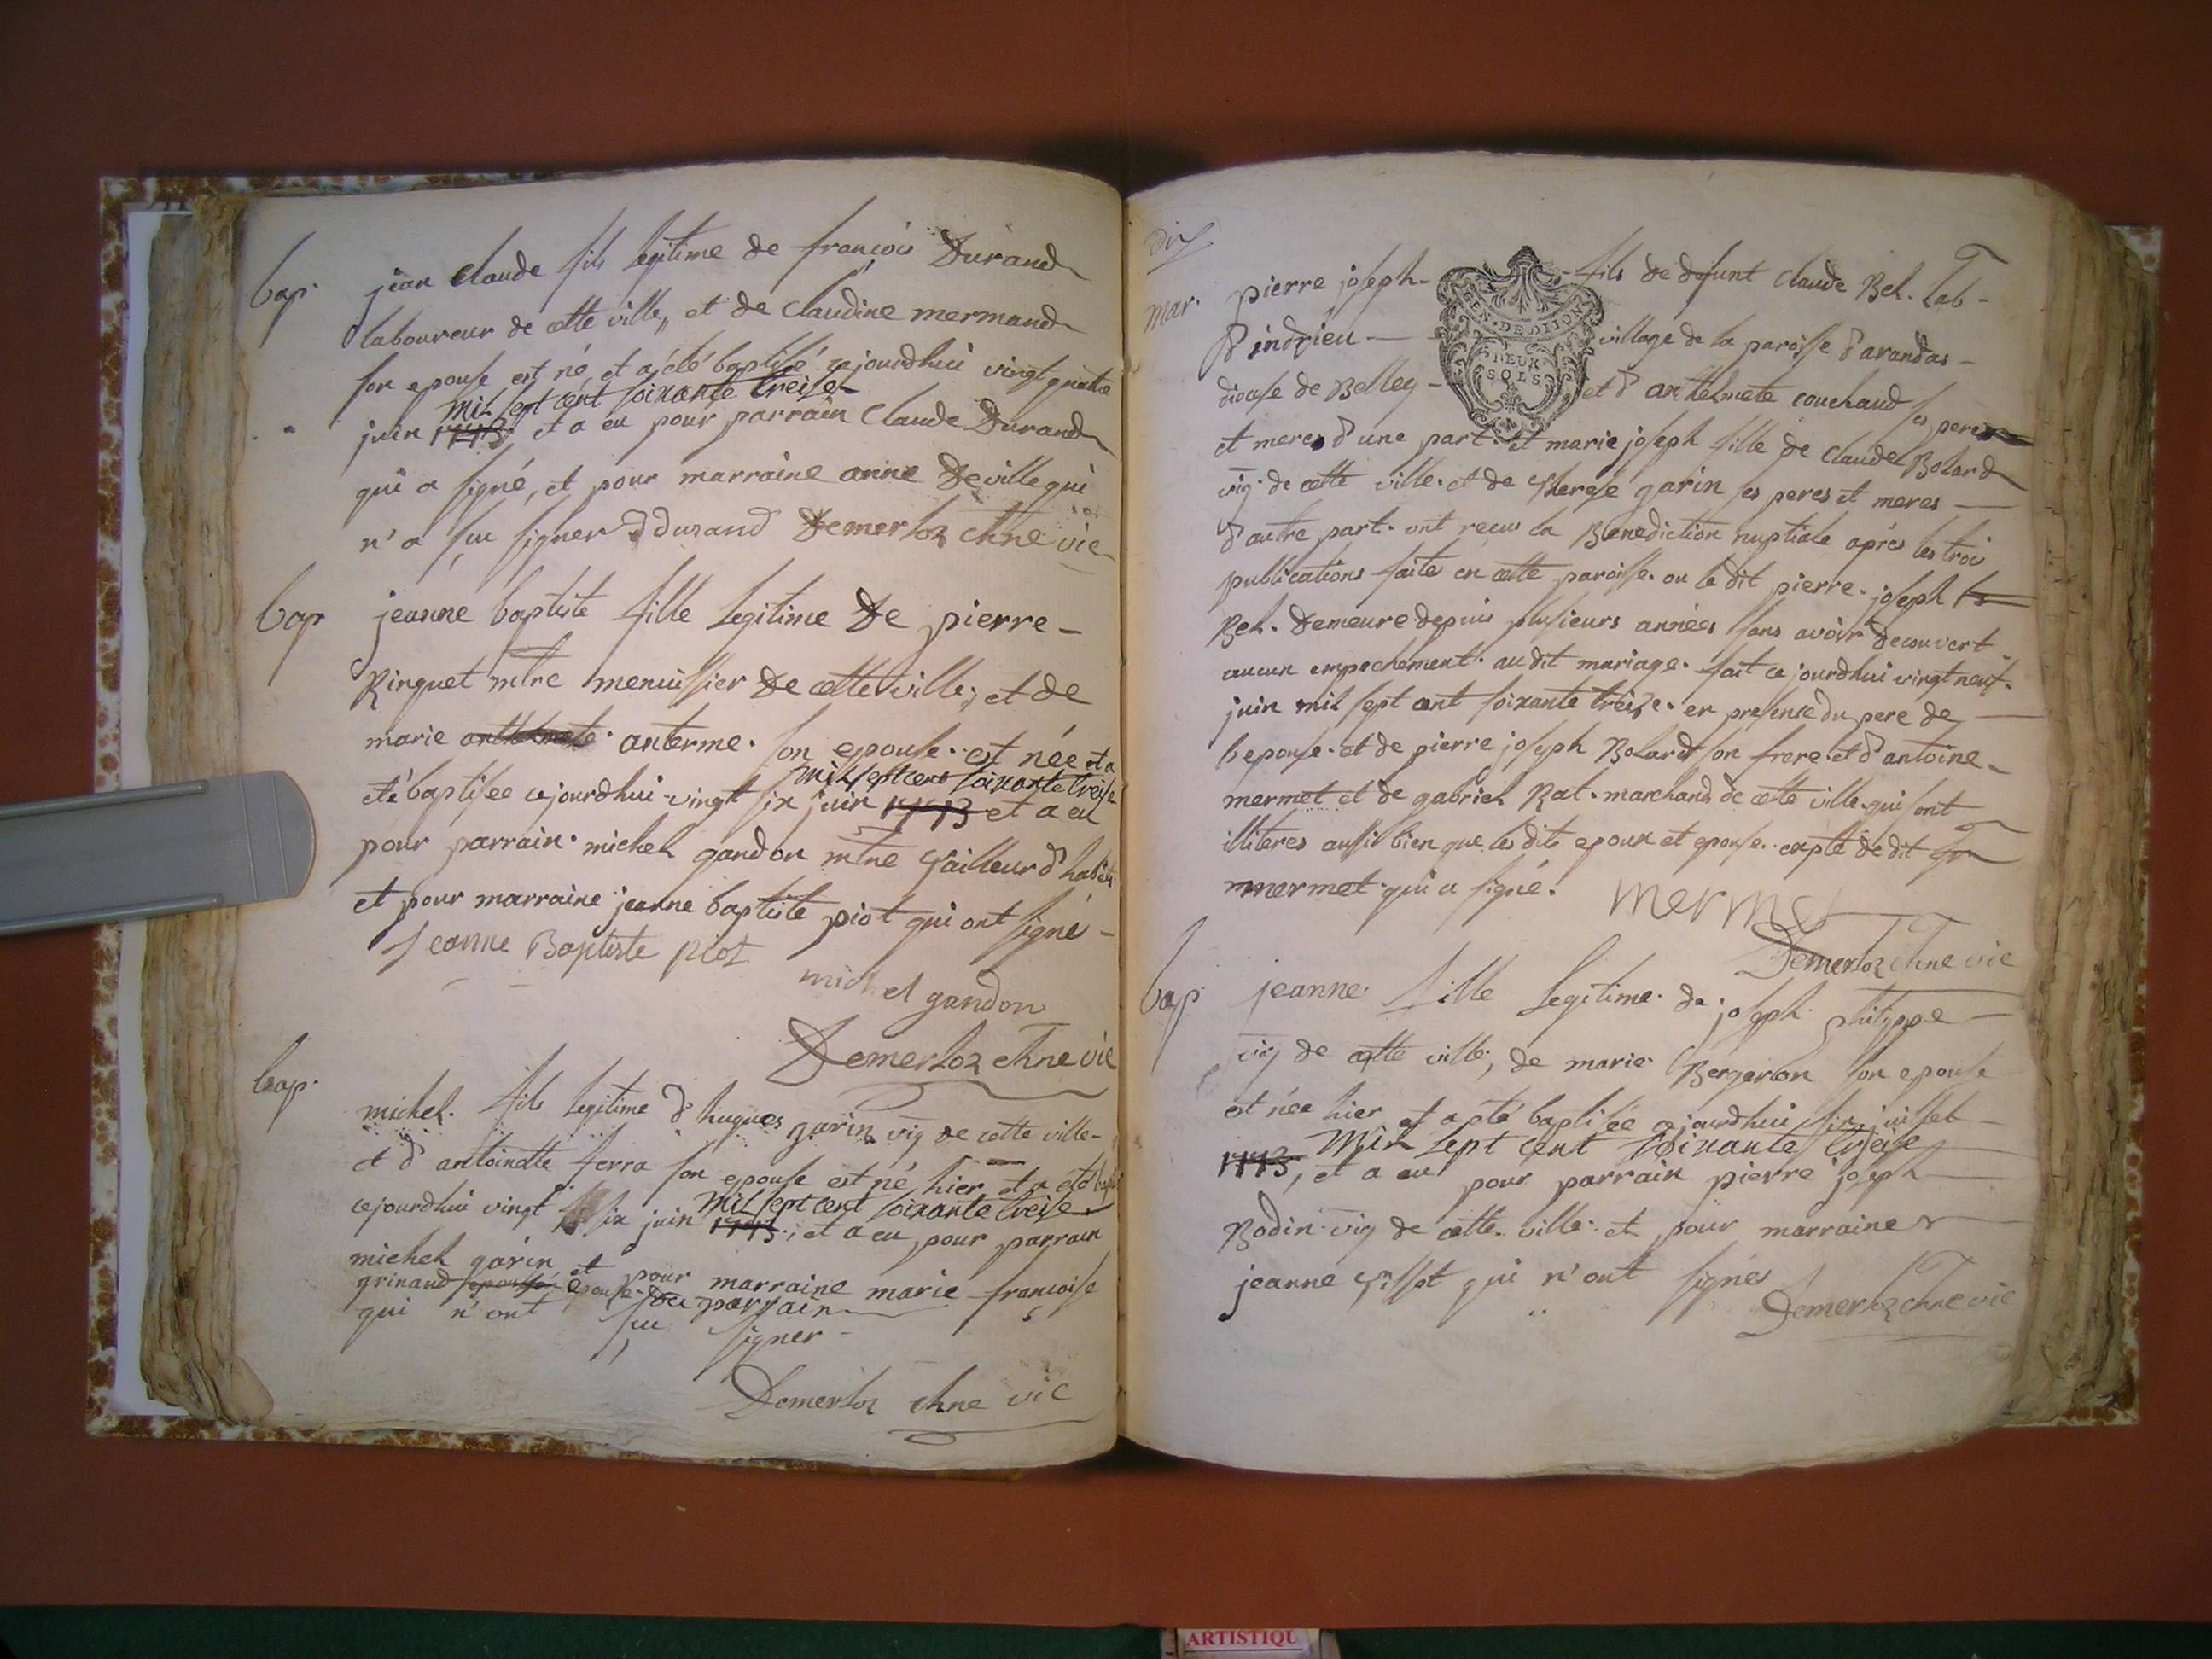 bap. jean claude fils legitime de françois Durand
laboureur de cette ville, et de claudine mermand
son epouse est né et a été baptisé cejourdhui vingt quatre
mil sept cent soixante treise
juin 1773, et a eu pour parrain Claude Durand
qui a signé, et pour marraine anne Deville qui
n'a su signer durand Demerloz chne vic
bap jeanne baptiste fille legitime De pierre
Rinquet mtre menuissier De cette ville, et de
marie anthelmete. anterme. son epouse. est née et a
mil sept cent soixante treise
eté baptisée cejourdhui vingt six juin 1773 et a eu
pour parrain. michel gandon mtre tailleur d'habits
et pour marraine jeanne baptiste piot qui ont signé
Jeanne Baptiste piot
michel gandon
Demerloz chne vic
bap. michel. fils legitime d'hugues garin vig de cette ville
et d'antoinette ferra son epouse est né hier et a été baptisé
mil sept cent soixante treise
cejourdhui vingt six juin 1773, et a eu pour parrain
michel garin et pour marraine marie françoise
grinand epouse du parrain
qui n'ont su signer
Demerloz chne vic
dix
mar. pierre joseph fils de defunt Claude Bel. lab
GEN. DE DIJON
NEUF
SOLS
d'indrieu village de la paroisse d'arandas
diocese de Belley et d'anthelmete couchaud ses peres
et meres d'une part. et marie joseph fille de claude Bolard
vig. de cette ville. et de therese garin ses peres et meres
d'autre part. ont recus la Benediction nuptiale aprés les trois
publications faite en cette paroisse. ou le dit pierre. joseph
Bel. Demeure depuis plusieurs années sans avoir decouvert
aucun empechement. audit mariage. fait ce jourdhui vingt neuf.
juin mil sept cent soixante treize. en presence du pere de
l'epouse. et de pierre joseph Bolard son frere. et d'antoine
mermet et de gabriel Rat. marchand de cette ville. qui sont
illiteres aussi bien que les dits epoux et epouse. expté de dit
mermet qui a signé. mermet
Demerloz chne vic
bap jeanne. fille legitime. de joseph. philippe
vig de cette ville, de marie Bergeron son epouse
est née hier et a eté baptisée cejourdhui six juillet
mil sept cent soixante treise
1773, et a eu pour parrain pierre joseph
Bodin vig de cette. ville. et pour marraine
jeanne tissot qui n'ont signés
Demerloz chne vic
ARTISTIQU